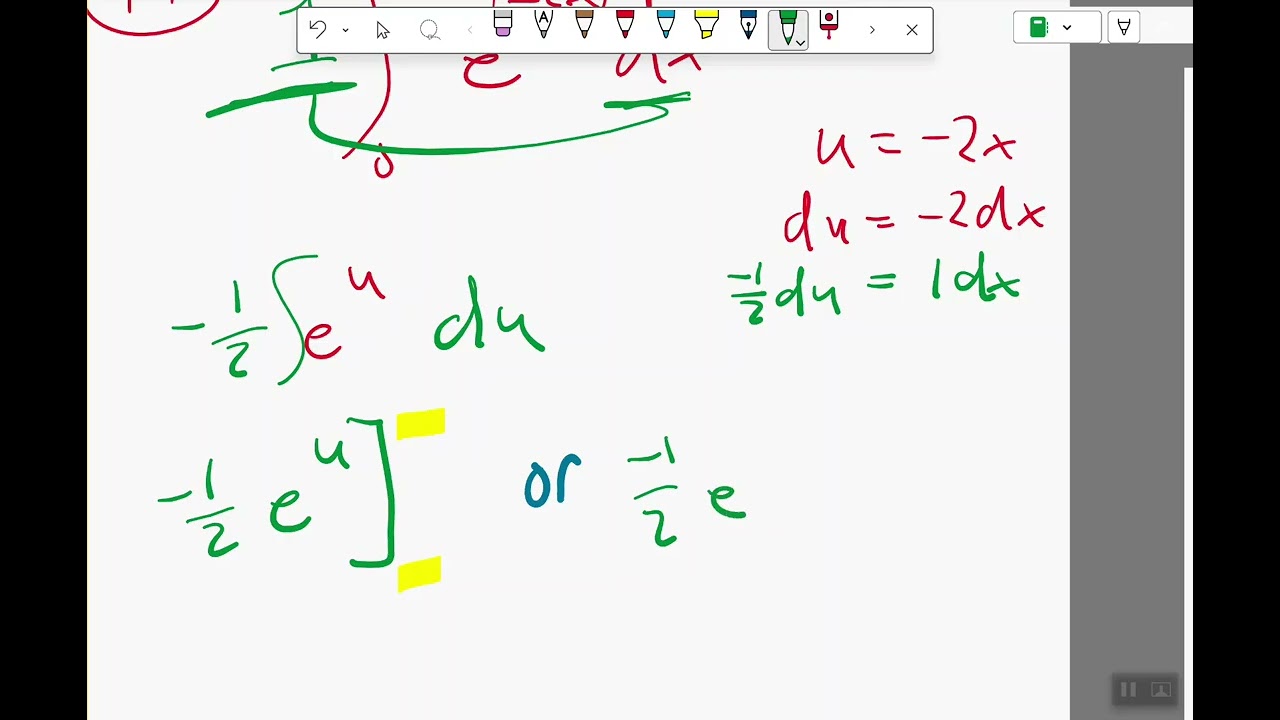 e dx
0
u = -2x
du = -2dx
-1/2 du = 1dx
-1/2 ∫e^u du
-1/2 e^u] or -1/2 e